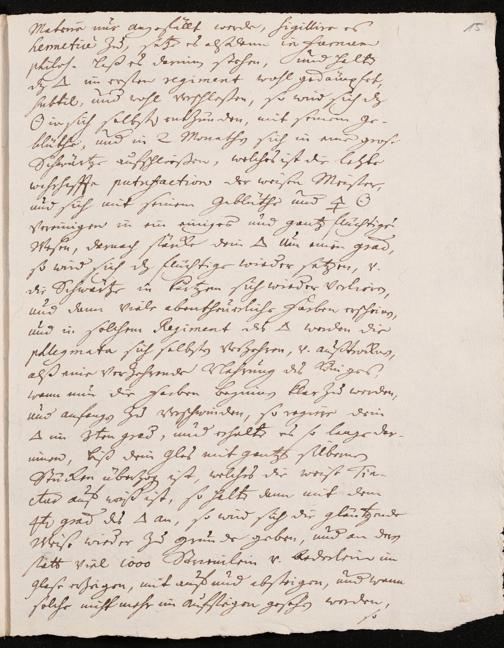 15
Materia nur angefüllt werde, sigillire es
hermeticè zu, setze es alsdann in furnum
philos. laß es darinn stehen, und halte
dz △ im ersten regiment wohl gedämpfet,
subtil, und wohl verschlossen, so wird sich dz
☉ in sich selbst entzünden, mit seinem ge-
blüthe, und in 2 Monathen sich in eine große
Schwärtze aufschliessen, welches ist die letzte
wahrhaffte putrifaction der weisen Meister,
und sich mit seinem Geblüthe und ☉
vereinigen in ein einiges und gantz flüchtiges
Wesen, darnach stärcke dein △ um einen grad,
so wird sich dz flüchtige wieder setzen, v.
die Schwärtze in kurtzem sich wieder verlieren,
und dann viele abentheurliche Farben erscheinen,
und in solchem Regiment des △ werden die
phlegmata sich selbst verzehren, v. austrocknen,
alß eine verzehrende Nahrung des Königes,
wann nun die Farben beginnen klar zu werden,
und anfangen zu verschwinden, so regiere dein
△ im 3ten grad, und erhalte es so lange dar-
innen, biß dein glas mit gantz silbernen
Stücken überzogen ist, welches die weisse Tin-
ctur auf weiß ist, so halte dann mit dem
4ten grad des △ an, so wird sich die gläntzende
Weise wieder zu grunde geben, und an der
statt viel 1000 v. Aederlein im
glase erzeigen, mit auf und absteigen, und wann
solche nicht mehr im aufsteigen gesehen werden,
so